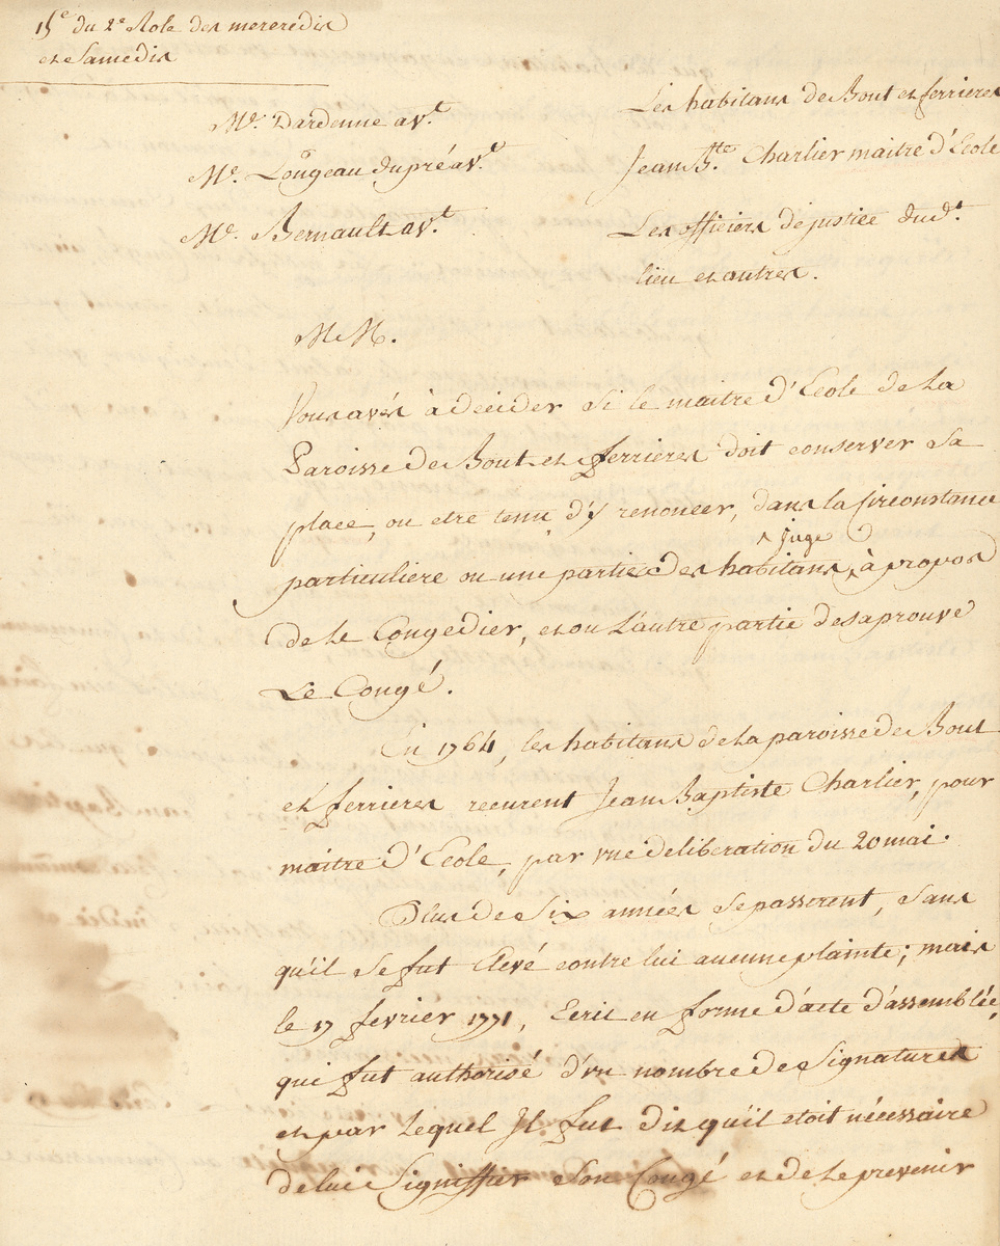 15e du 2e Role des mereredis
et Samedis
Me. Dardenne avt.
Me. Lougeau dupré avt.
Me. Bernault avt.
Les habitans de Bout et ferrieres
Jean Bte. Charlier maitre d'Ecole
Les officiers de justice dudt.
lieu et autres.
M M.
Vous avés à decider si le maitre d'Ecole de la
Paroisse de Bout et ferrieres doit conserver sa
place, ou etre tenu d'y renoncer, dans la circonstance
particuliere ou une partie des habitans, juge à propos
de le Congedier, et ou l'autre partie desaprouve
Le Congé.
En 1764, les habitans de la paroisse de Bout
et ferrieres recurent Jean Baptiste Charlier, pour
maitre d'Ecole, par une deliberation du 20 mai.
Plus de Six années se passerent, sans
qu'il se fut Elevé contre lui aucune plainte; mais
le 17 fevrier 1771, Ecrit en forme d'acte d'assemblée,
qui fut authorisé d'un nombre de Signatures
et par Lequel Il fut dit qu'il etoit nécessaire
de lui Signiffier Son Congé et de le prevenir